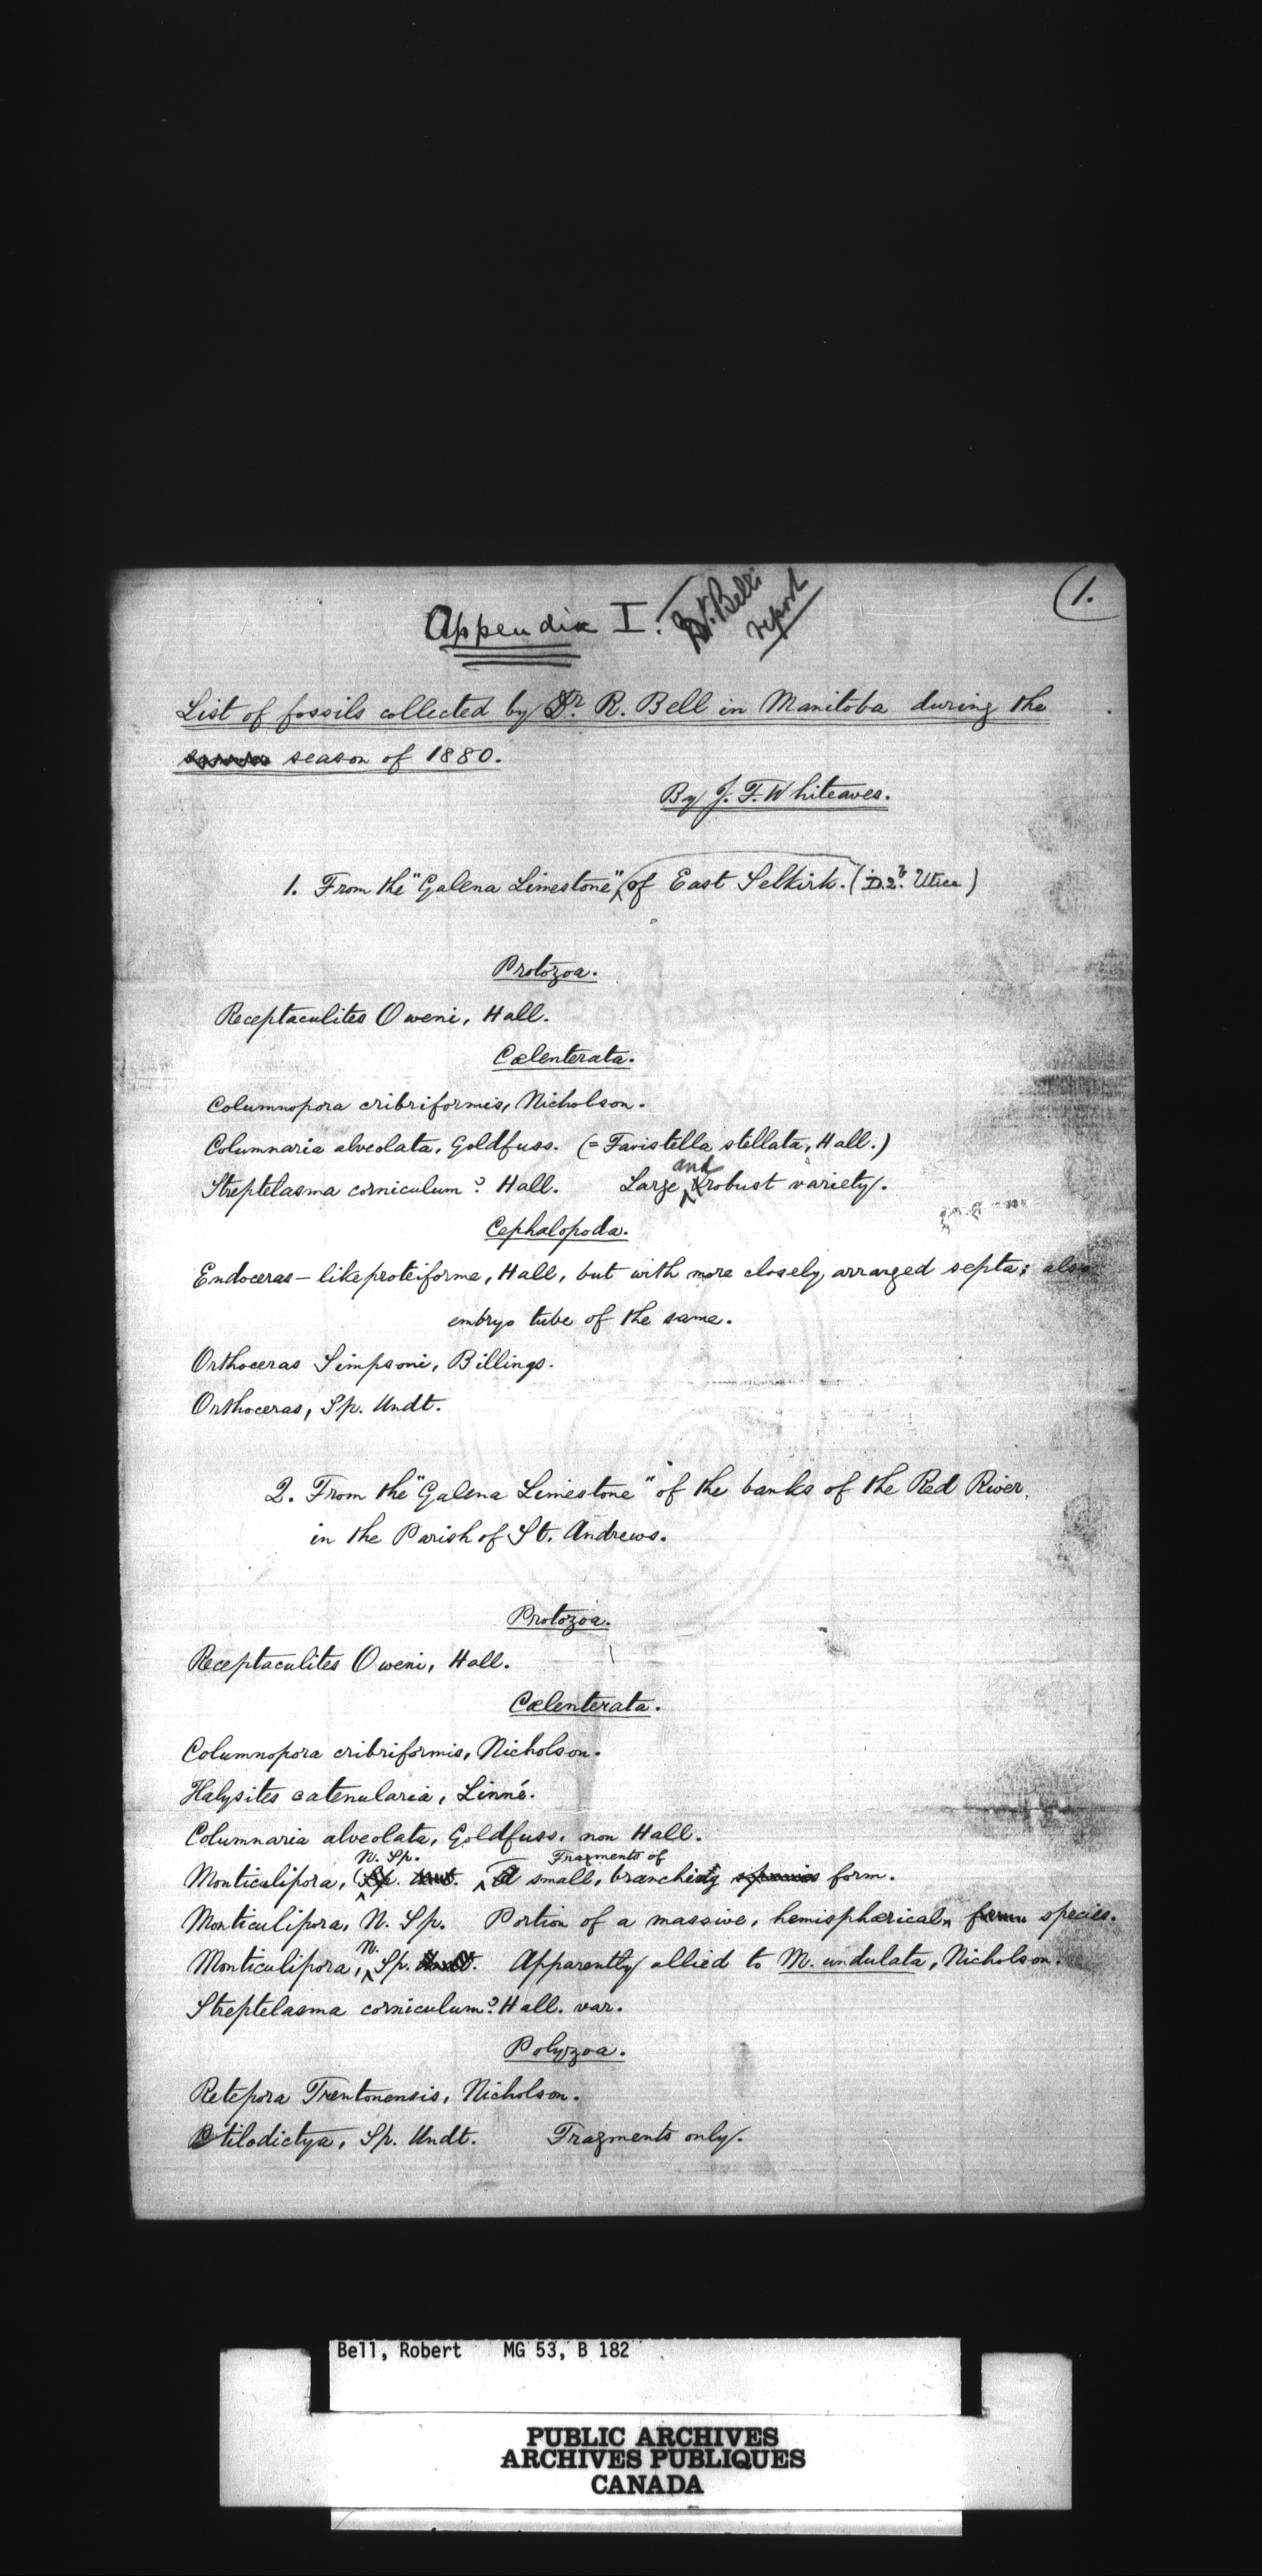 (1.
Appendix I. Dr. Bell's
report
List of fossils collected by Dr. R. Bell in Manitoba during the
season of 1880.
By J. F. Whiteaves.
1. From the "Galena Limestone" of East Selkirk. (D.2? Utica)
Protozoa.
Receptaculites Oweni, Hall.
Cœlenterata.
Columnopora cribriformis, Nicholson.
Columnaria alveolata, Goldfuss. (= Favistella stellata, Hall.)
and
Streptelasma corniculum? Hall. Large robust variety.
Cephalopoda.
Endoceras – like proteiforme, Hall, but with more closely arranged septa; also
embryo tube of the same.
Orthoceras Simpsoni, Billings.
Orthoceras, Sp. Undt.
2. From the "Galena Limestone" of the banks of the Red River,
in the Parish of St. Andrews.
Protozoa.
Receptaculites Oweni, Hall.
Cœlenterata.
Columnopora cribriformis, Nicholson.
Halysites catenularia, Linné.
Columnaria alveolata, Goldfuss, non Hall.
N. Sp. Fragments of
Monticulipora, Sp. Undt. A small, branching species form.
Monticulipora, N. Sp. Portion of a massive, hemisphærical form species.
N.
Monticulipora, Sp. Undt. Apparently allied to M. undulata, Nicholson.
Streptelasma corniculum? Hall. var.
Polyzoa.
Retepora Trentonensis, Nicholson.
Ptilodictya, Sp. Undt. Fragments only.
Bell, Robert MG 53, B 182
PUBLIC ARCHIVES
ARCHIVES PUBLIQUES
CANADA